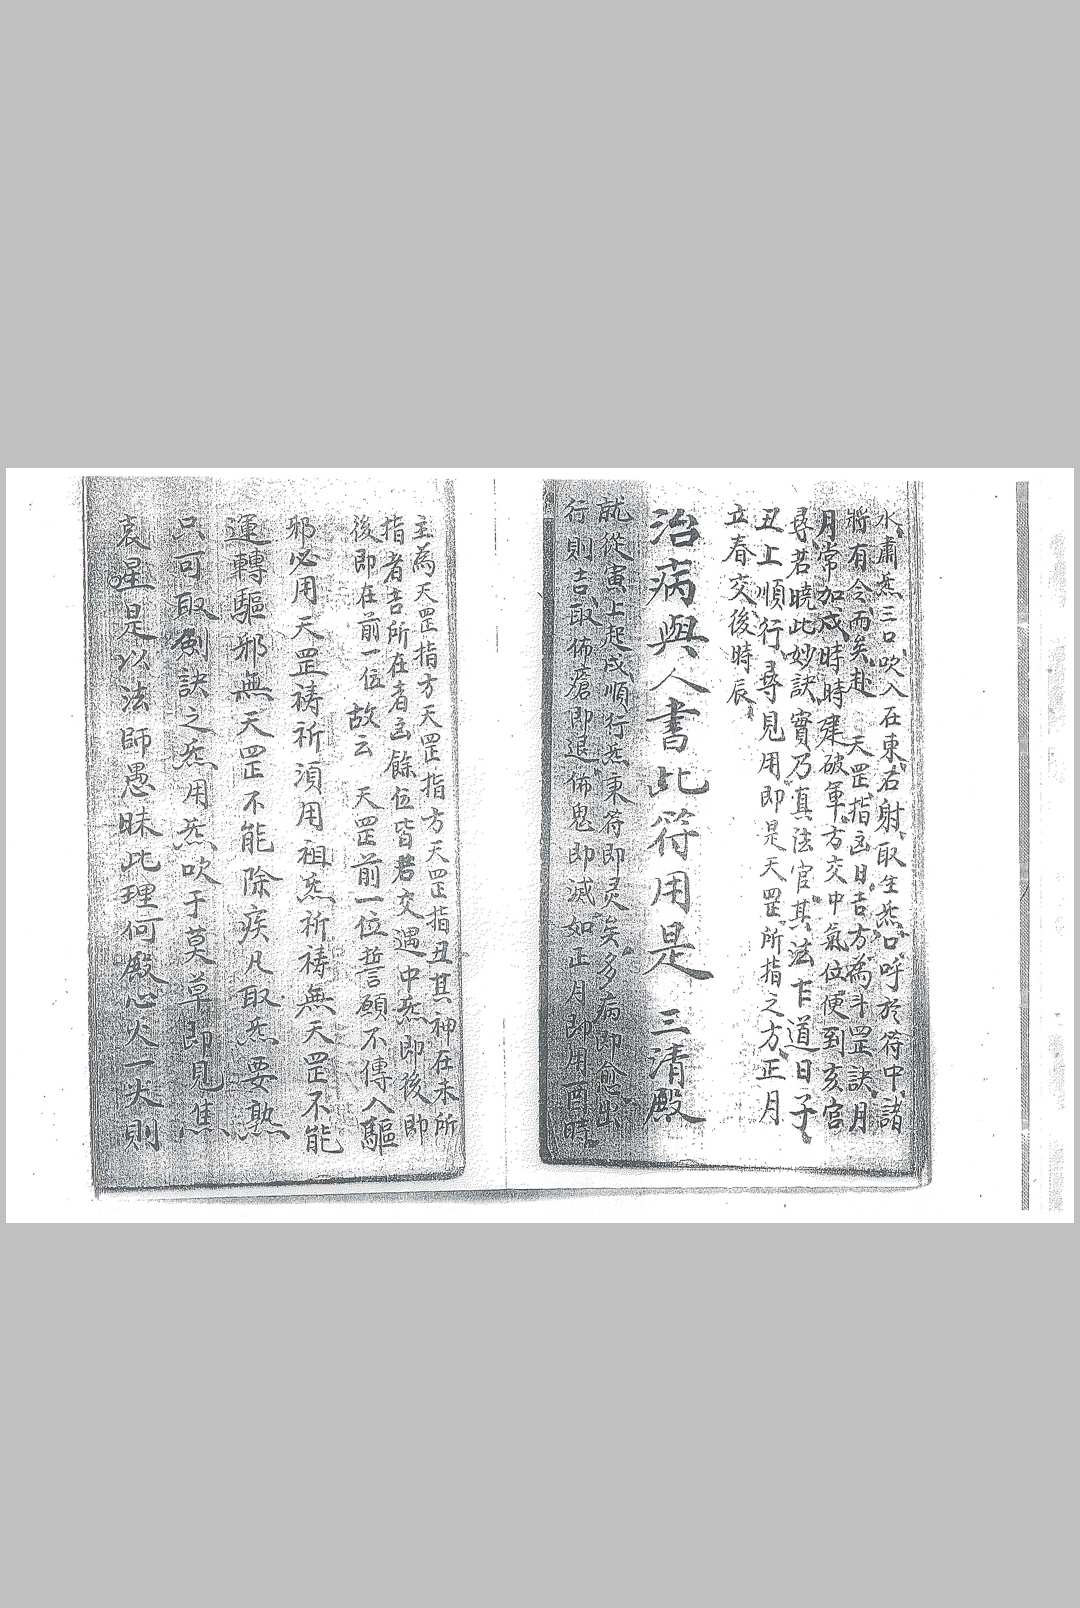 水肅炁三口吹入在東右射取生炁口呼於符中諸
將有令而矣赴 天罡指凶日吉方為斗罡訣月
月常加戍時時建破軍方交中氣位便到亥宮
尋若曉此妙訣實乃真法官其法下道日子
丑上順行尋見用即是天罡所指之方正月
立春交後時辰
治病與人書此符用是 三清殿
就從寅上起戍順行炁東符即灵矣多病即愈出
行則吉取佈瘡即退佈鬼即滅如正月即用酉時
主為天罡指方天罡指方天罡指丑其神在未所
指者吉所在者凶餘位皆若交遇中炁即後即
後即在前一位故云 天罡前一位誓願不傳人驅
邪必用天罡祷祈須用祖炁祈祷無天罡不能
運轉驅邪無天罡不能除疾凡取炁要熟
只可取訣之炁用炁吹于莫草即見焦
哀星是以法師愚昧此理何殿心火一尖則